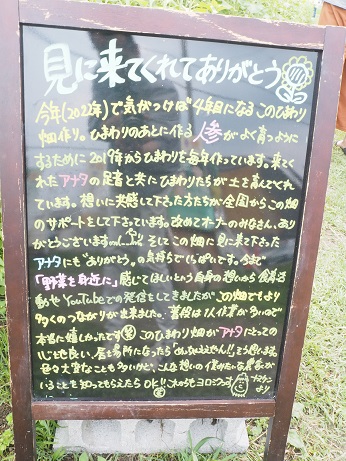 見に来てくれてありがとう
今年(2022年)で気がつけば4年目になるこのひまわり
畑作り。ひまわりのあとに作る人参がよく育つように
するために2019年からひまわりを毎年作っています。来てく
れたアナタの足音と共にひまわりたちが土を育んでくれ
ています。想いに共感して下さった方たちが全国からこの畑
のサポートをして下さっています。改めてオーナーのみなさん、あり
がとうございますm(_ _)m そしてこの畑に見に来て下さった
アナタにも"ありがとう。"の気持ちでいっぱいです。今まで
「野菜を身近に」感じてほしいという自身の想いから食育活
動やYouTubeでの発信をしてきましたがこの畑でもより
多くのつながりが出来ました。普段は1人作業が多いので
本当に嬉しかったです このひまわり畑がアナタにとっての
心地良い居る場所になったら「めっちゃええやん!!」そう思います。
色々大変なことも多いけど、こんな想いの僕みたいな農家が
いることを知ってもらえたらOK!! これからもヨロシクっす
より